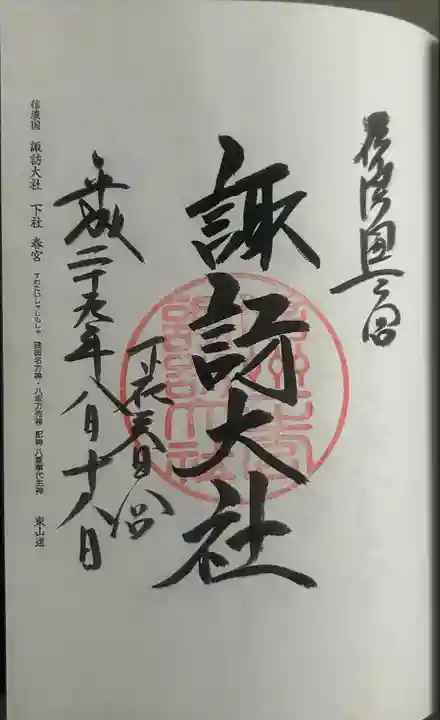 信濃国一之宮
諏訪大社
下社春宮
平成二十九年八月十八日
信濃国 諏訪大社 下社 春宮 すわたいしゃしもしゃ 建御名方神・八坂刀売神 配神 八重事代主神 東山道